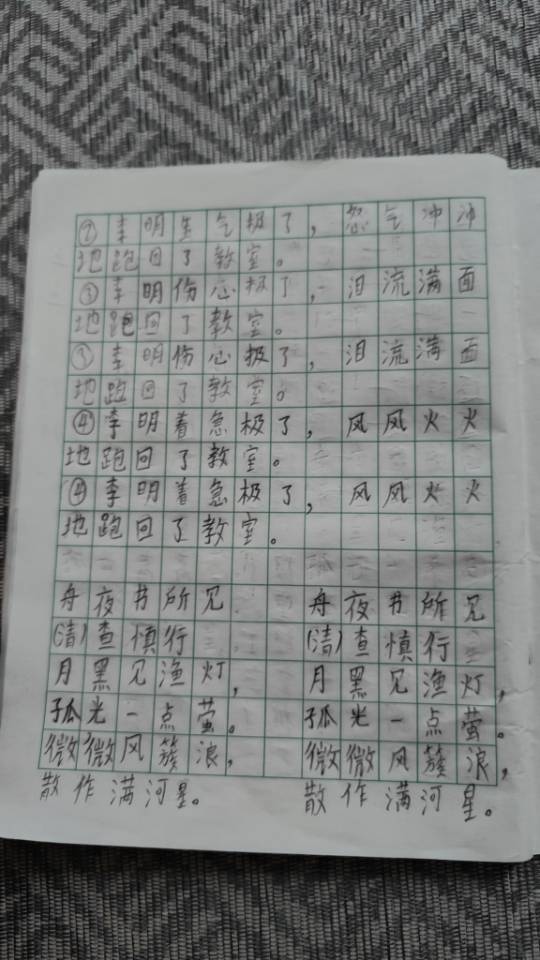 ②李明生气极了，怒气冲冲
地跑回了教室。
③李明伤心极了，泪流满面
地跑回了教室。
③李明伤心极了，泪流满面
地跑回了教室。
④李明着急极了，风风火火
地跑回了教室。
④李明着急极了，风风火火
地跑回了教室。
舟夜书所见 舟夜书所见
(清)查慎行 (清)查慎行
月黑见渔灯， 月黑见渔灯，
孤光一点萤。 孤光一点萤。
微微风簇浪， 微微风簇浪，
散作满河星。 散作满河星。